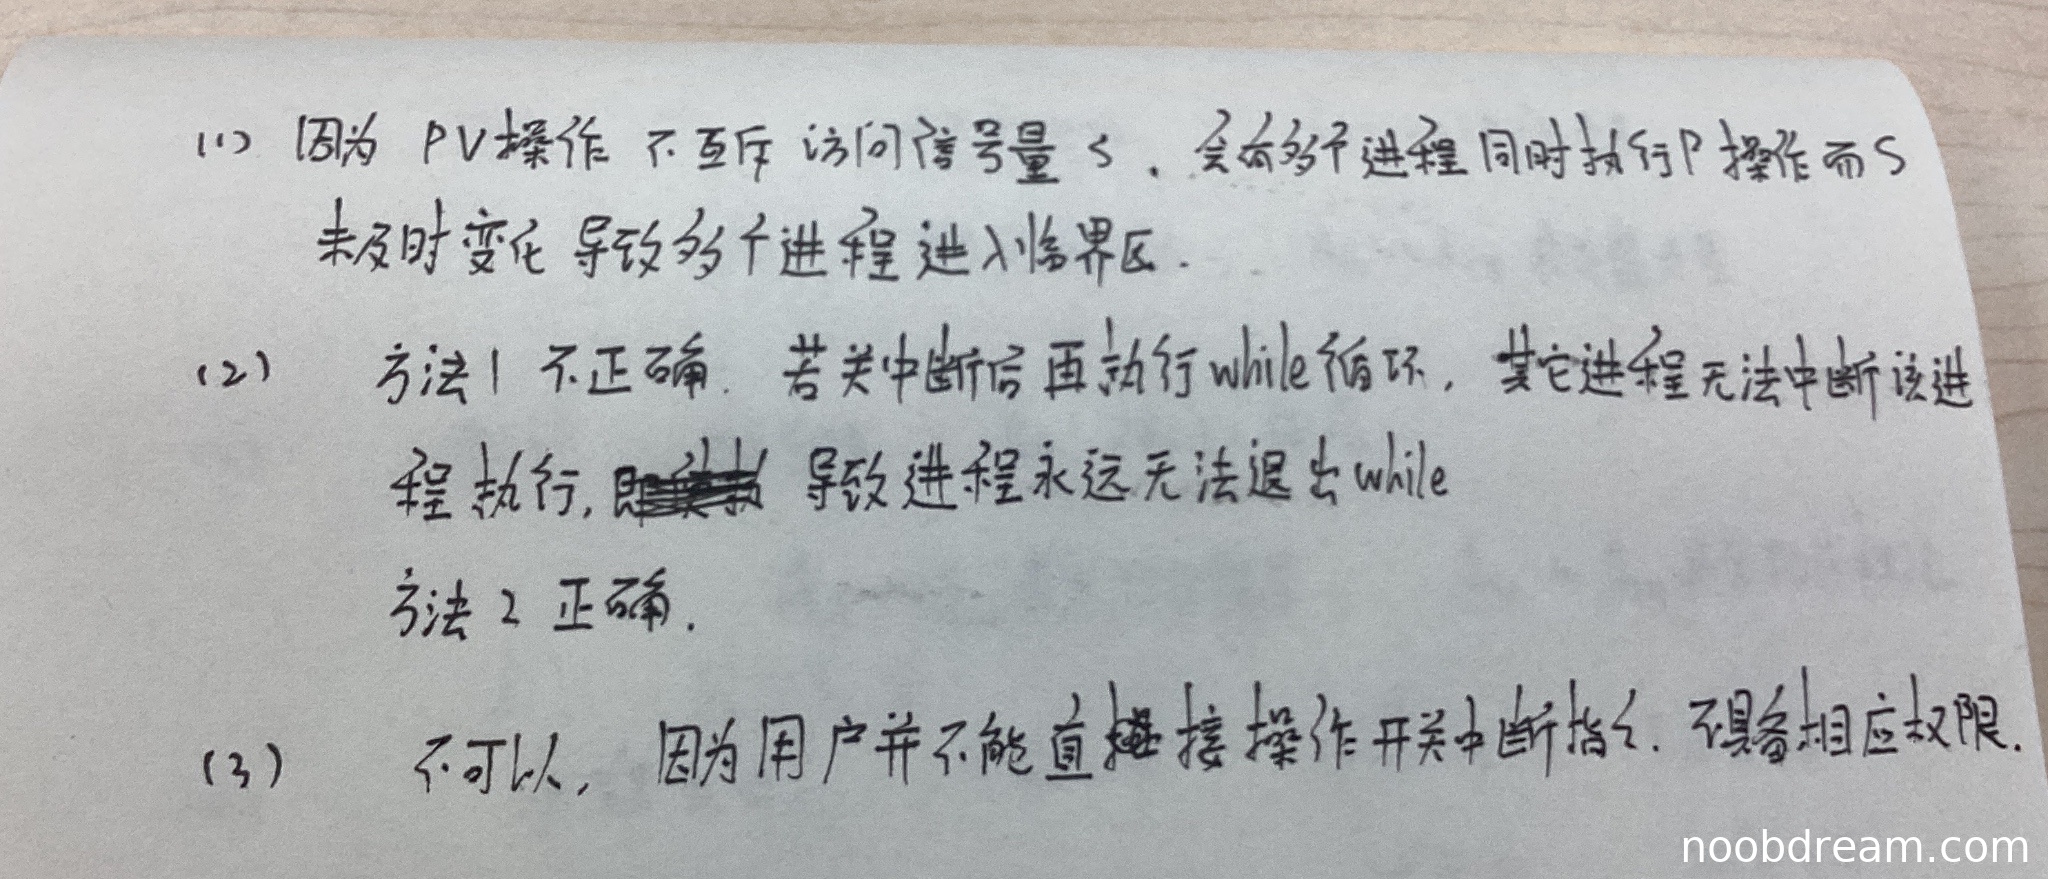 (1) 因为 PV操作 不互斥 访问信号量 S . 会有多个进程同时执行P操作而S
未及时变化 导致多个进程 进入临界区 .
(2) 方法1 不正确. 若关中断后再执行while循环, 其它进程无法中断该进
程执行, 导致进程永远无法退出while
方法2 正确.
(3) 不可以, 因为用户并不能直接操作开关中断指令. 不具备相应权限.
noobdream.com